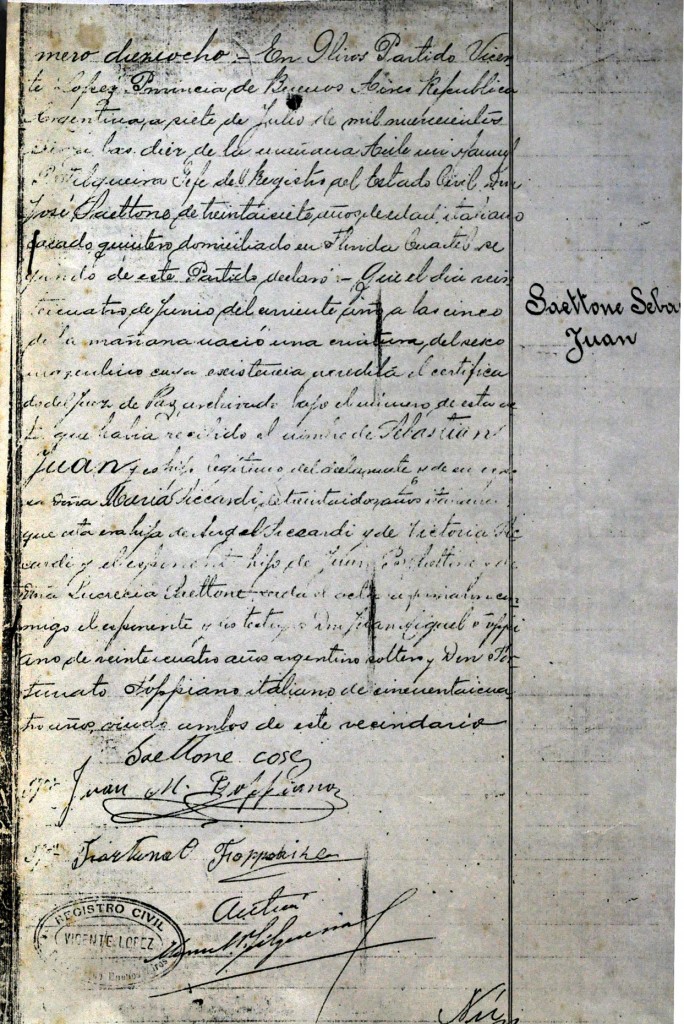 mero dieciocho – En Olivos Partido Vicen
te Lopez Provincia de Buenos Aires Republica
Argentina, a siete de Julio de mil novecientos
a las diez de la mañana Ante mi Manuel
Gefe del Registro del Estado Civil, Don
José Saettone, de treintaisiete, años, de edad, italiano
casado quintero, domiciliado en Florida Cuartel se
gundo de este Partido declaró – Que el dia vein
ticuatro de Junio del corriente año a las cinco
de la mañana nació una criatura, del sexo
masculino cuya existencia acredita el certifica
do del Juez de Paz, archivado bajo el número de esta ac
ta que habia recibido el nombre de Sebastian
Juan y es hijo legitimo del declarante y de su espo
sa Doña Maria Siccardi, de treintaidos, años italiana
que esta era hija de Angel Siccardi y de Victoria
y el esponente hijo de Juan Saettone y de
Doña Lucrecia Saettone
migo el esponente y los testigos Don Juan Miguel Foppi
ano de veinticuatro años argentino soltero y Don For
tunato Foppiano italiano de cincuentaicua
tro años, viudo ambos de este vecindario
Saettone Seba
Juan
Saettone José
Juan M. Foppiano
Fortunato Foppiano
REGISTRO CIVIL
VICENTE LOPEZ